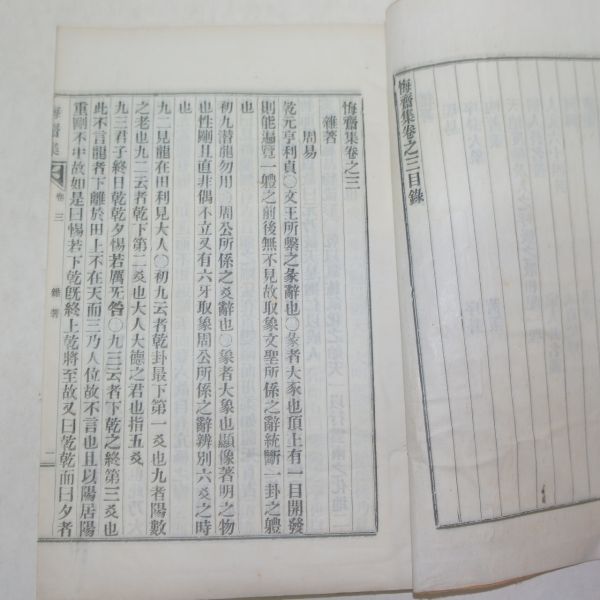 悔齋集卷之三目錄
悔齋集卷之三
雜著
周易
乾元亨利貞○文王所繫之彖辭也○彖者大豕也頂上有一目開發
則能遍覓一軆之前後無不見故取象文聖所係之辭統斷一卦之軆
也
初九潛龍勿用 周公所係之爻辭也○象者大象也顯像著明之物
也性剛且直非偶不立又有六牙取象周公所係之辭辨別六爻之時
也
九二見龍在田利見大人○初九云者乾卦最下第一爻也九者陽數
之老也九二云者乾下第二爻也大人大德之君也指五爻
九三君子終日乾乾夕惕若厲无咎○九三云者下乾之終第三爻也
此不言龍者下離於田上不在天而三乃人位故不言也且以陽居陽
重剛不中故如是曰惕若下乾旣終上乾將至故又曰乾乾而曰夕者
悔齋集 卷三 雜著 二